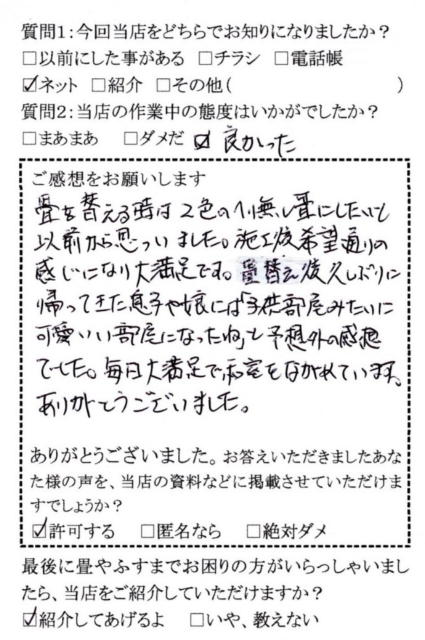 質問1:今回当店をどちらでお知りになりましたか?
□以前にした事がある □チラシ □電話帳
☑ネット □紹介 □その他( )
質問2:当店の作業中の態度はいかがでしたか?
□まあまあ □ダメだ ☑ 良かった
ご感想をお願いします
畳を替える時は2色のヘリ無し畳にしたいと
以前から思っていました。施工後希望通りの
感じになり大満足です。畳替え後久しぶりに
帰ってきた息子や娘には「子供部屋みたいに
可愛いい部屋になったね」と予想外の感想
でした。毎日大満足で和室をながめています。
ありがとうございました。
ありがとうございました。お答えいただきましたあな
た様の声を、当店の資料などに掲載させていただけま
すでしょうか?
☑許可する □匿名なら □絶対ダメ
最後に畳やふすまでお困りの方がいらっしゃいまし
たら、当店をご紹介していただけますか?
☑紹介してあげるよ □いや、教えない